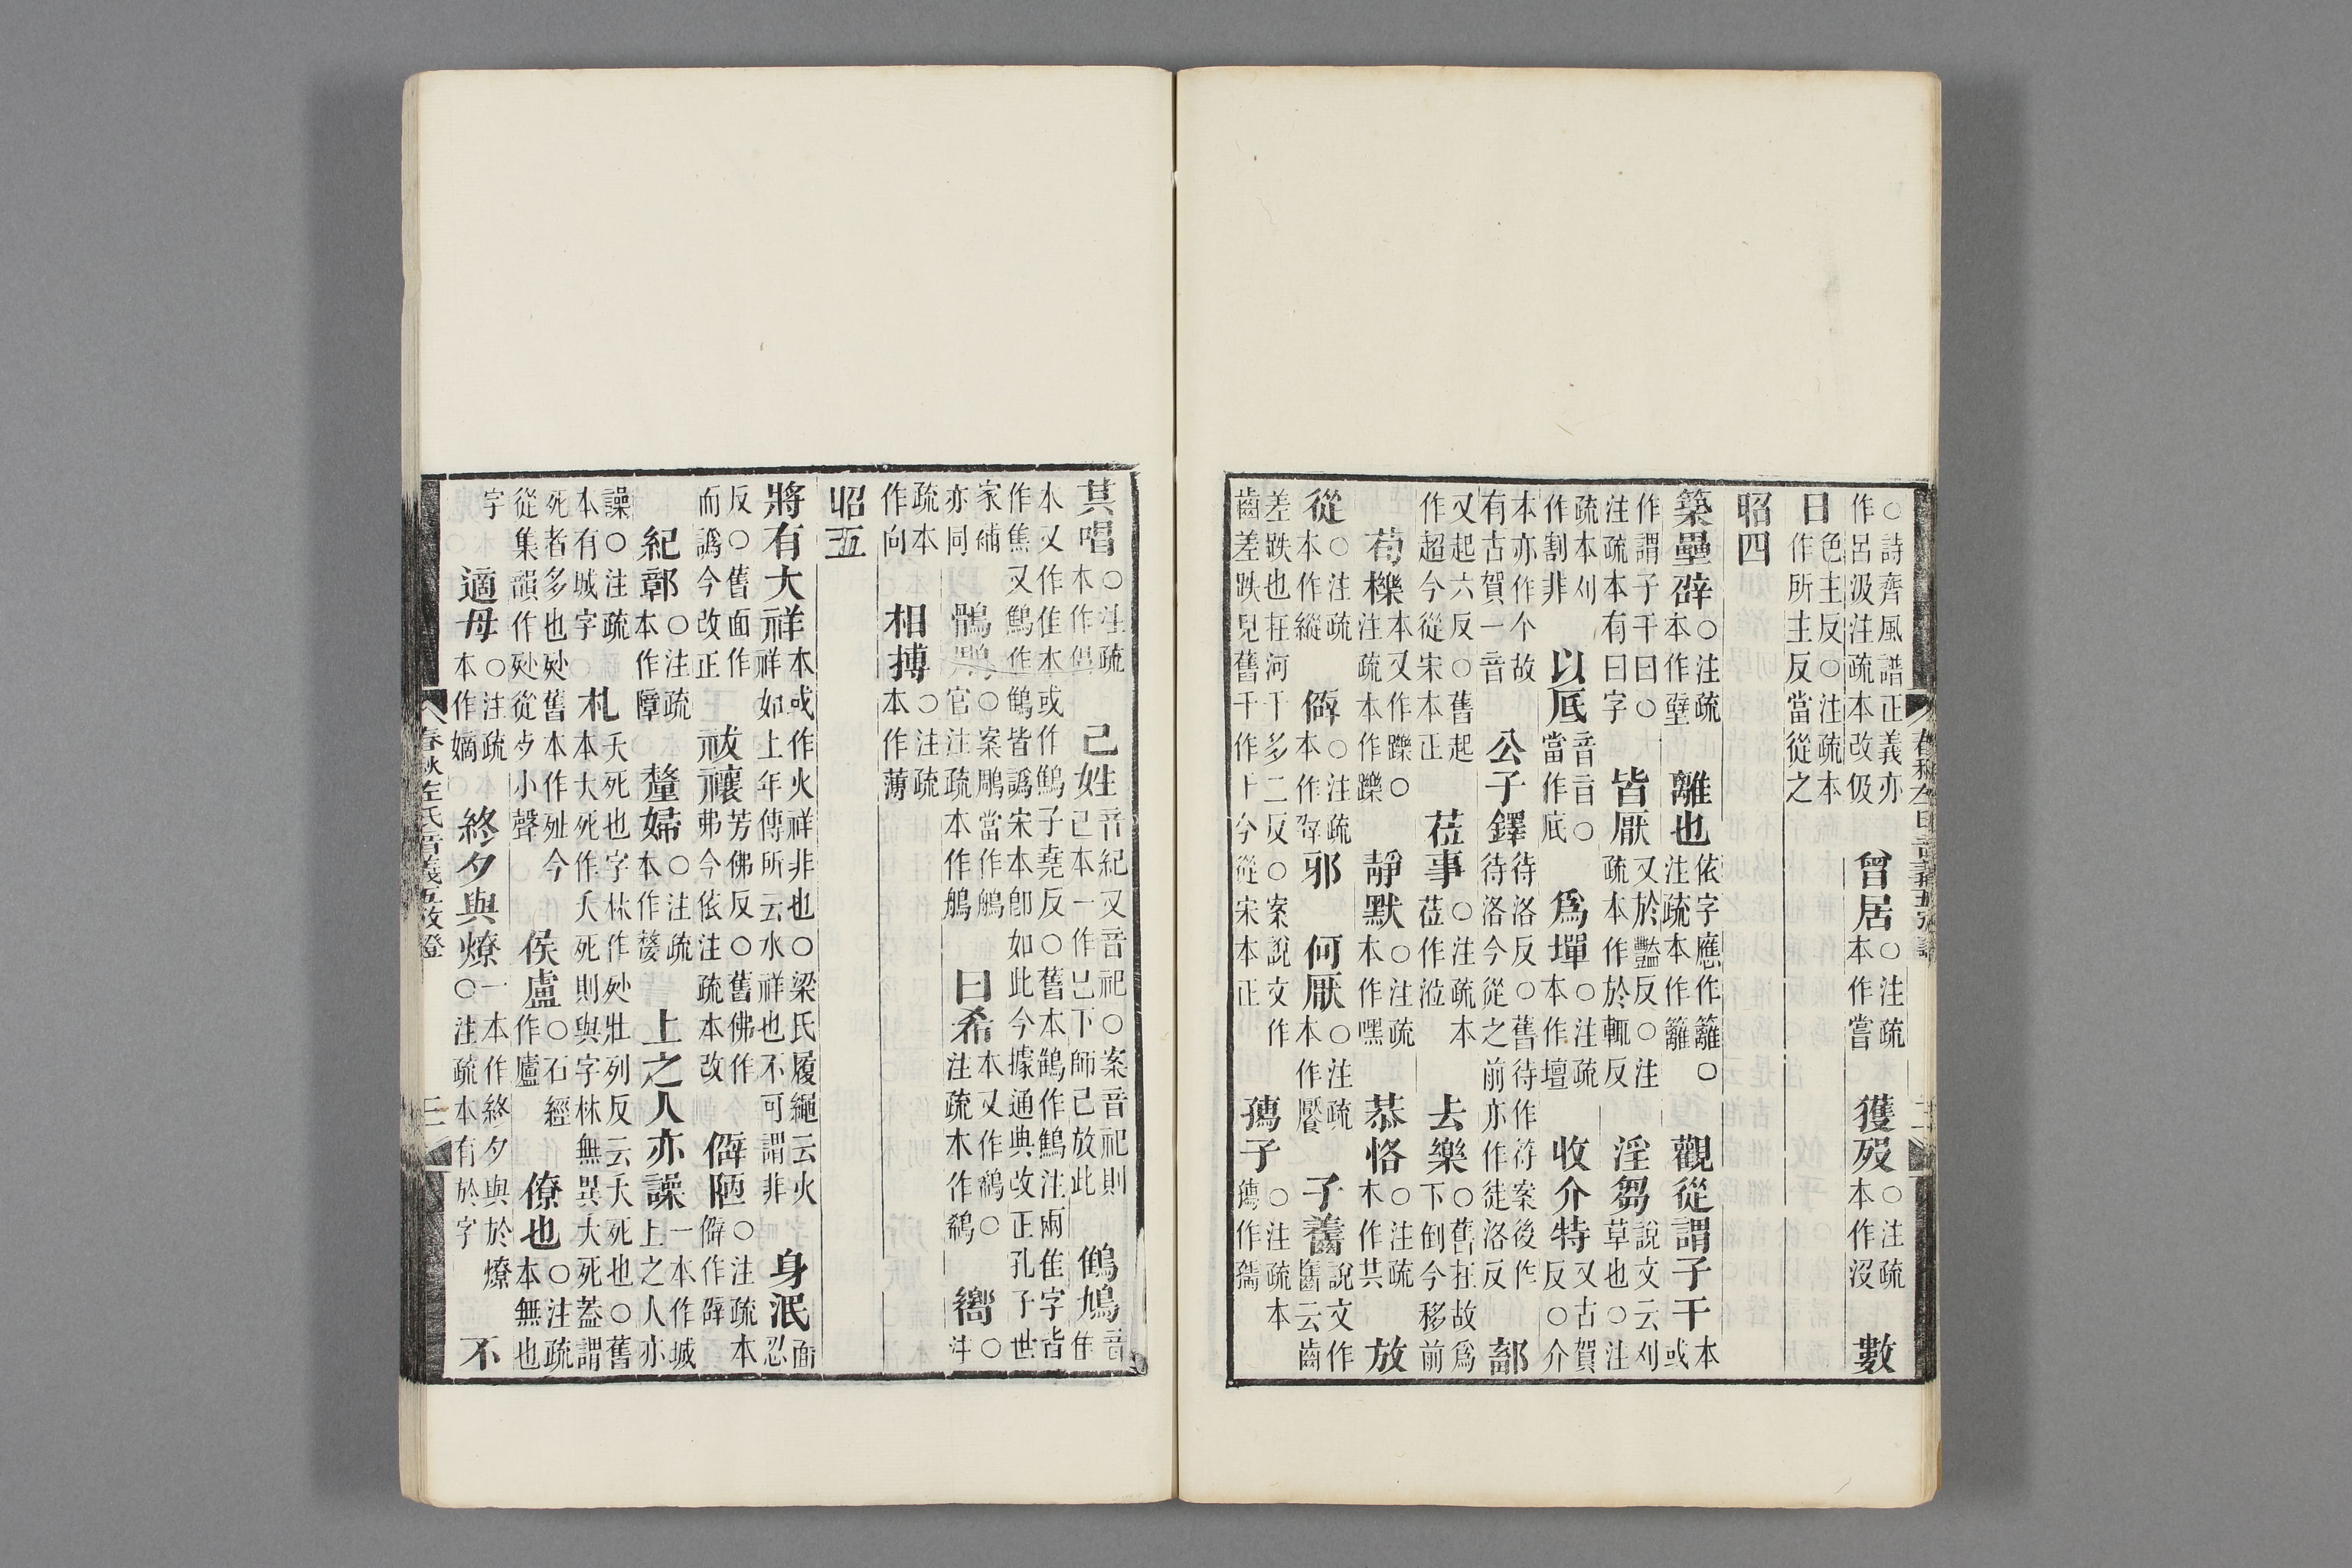 ○詩齊風譜正義亦作呂汲注疏本改伋 曾居○注疏本作嘗 獲歿○注疏本作沒 數
日色主反○注疏本作所主反當從之
昭四
築壘辟○注疏本作壁 離也依字應作籬○注疏本作籬 觀從謂子干本或
作謂子干曰○注疏本有曰字 皆厭又於豔反○注疏本作於輒反 淫芻說文云刈草也○注
疏本刈作割非 以厎音旨○當作底 爲墠○注疏本作壇 收介特又古賀反○介
本亦作个故有古賀一音 公子鐸待洛反○舊待作符案後作待洛今從之前亦作徒洛反 郚
又起六反○舊起作超今從宋本正 莅事○注疏本莅作涖 去樂○舊在故爲下倒今移前
荀櫟本又作躒○注疏本作躒 靜默○注疏本作嘿 恭恪○注疏本作共 放
從○注疏本作縱 僻○注疏本作辟 邪 何厭○注疏本作饜 子齹說文作䶥云齒
差跌也在河千多二反○案說文作齒差跌皃舊千作十今從宋本正 子○注疏本作孺
其唱○注疏本作倡 己姓音紀又音祀○案音祀則己本一作巳下師己放此 鳩音隹
本又作隹本或作鷦子堯反○舊本鵻作鷦注兩隹字皆作焦又鷦作鶴皆譌宋本卽如此今據通典改正孔子世
家補亦同 鶻○案鵰當作鵃官注疏本作鵃 曰希本又作鵗○注疏本作鵗 嚮○注
疏本作向 相搏○注疏本作薄
昭五
將有大祥本或作火祥非也○梁氏履繩云火祥如上年傳所云水祥也不可謂非 身泯面忍
反○舊面作而譌今改正 祓禳芳佛反○舊佛作弗今依注疏本改 僻陋○注疏本僻作辟
紀鄣○注疏本作障 釐婦○注疏本作嫠 上之人亦譟一本作城上之人亦
譟○注疏本有城字 札夭死也字林作㱐壯列反云夭死也○舊本大死作夭死則與字林無異大死蓋謂
死者多也㱐舊本作歽今從集韻作㱐從歺小聲 侯盧○石經作廬 僚也○注疏本無也
字 適母○注疏本作嫡 終夕與燎一本作終夕與於燎○注疏本有於字 不
春秋左氏音義五攷證 三